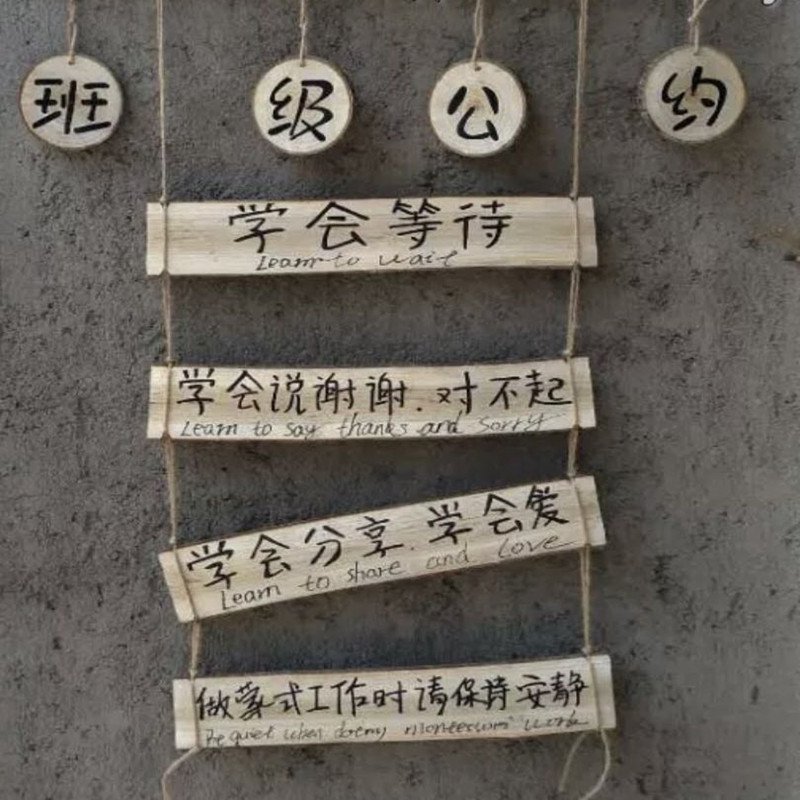 班级公约
学会等待
Learn to wait
学会说谢谢.对不起
Learn to say thanks and sorry
学会分享.学会爱
Learn to share and love
做蒙式工作时请保持安静
Be quiet when doing montessori work